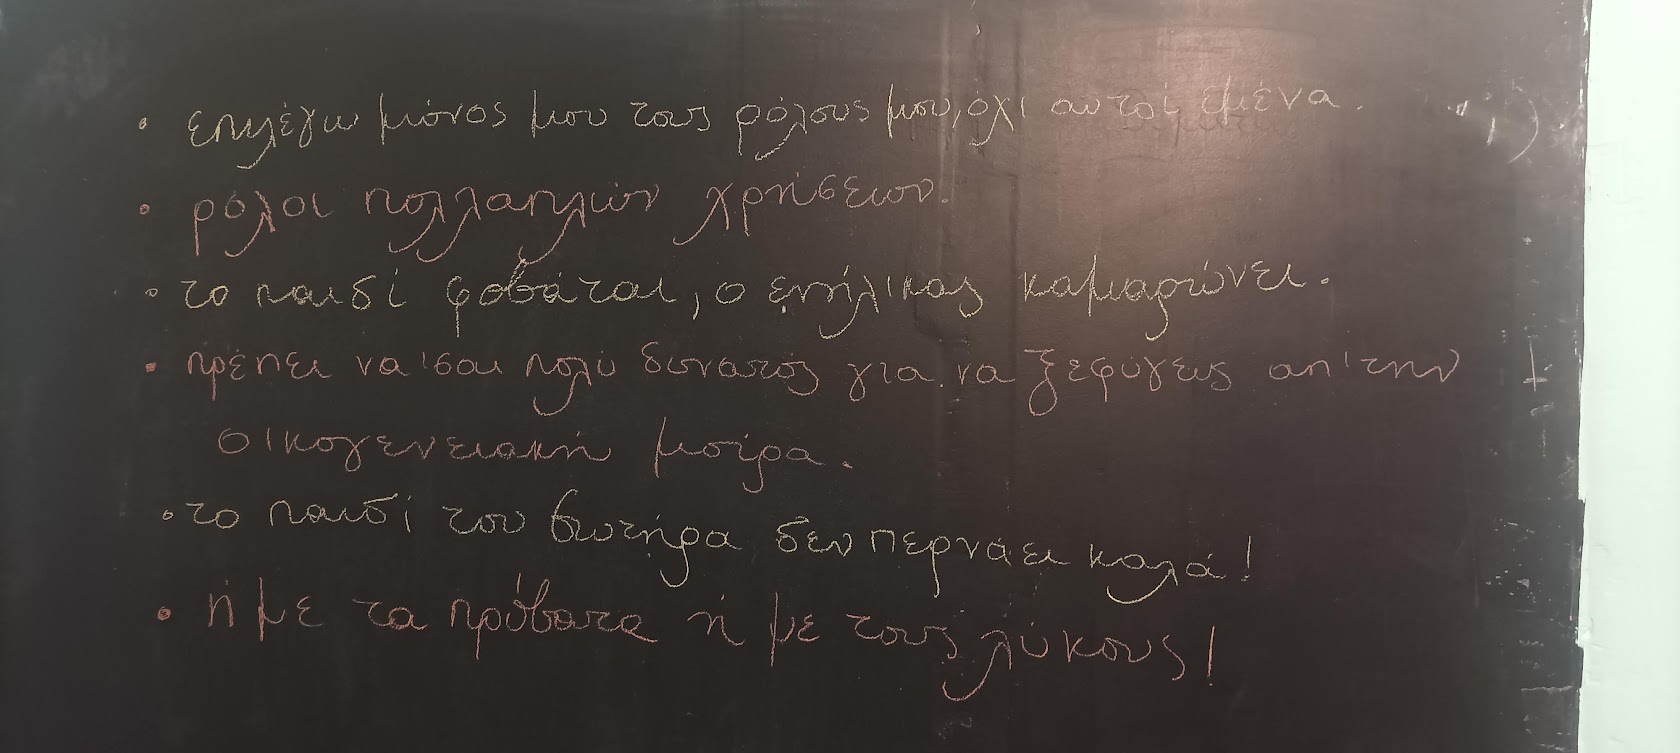 • επιλέγω μόνος μου τους ρόλους μου, όχι αυτοί εμένα.
• ρόλοι πολλαπλών χρήσεων.
• το παιδί φοβάται, ο ενήλικας καμαρώνει.
• πρέπει να 'σαι πολύ δυνατός για να ξεφύγεις απ' την
οικογενειακή μοίρα.
• το παιδί του σωτήρα δεν περνάει καλά!
• ή με τα πρόβατα ή με τους λύκους!